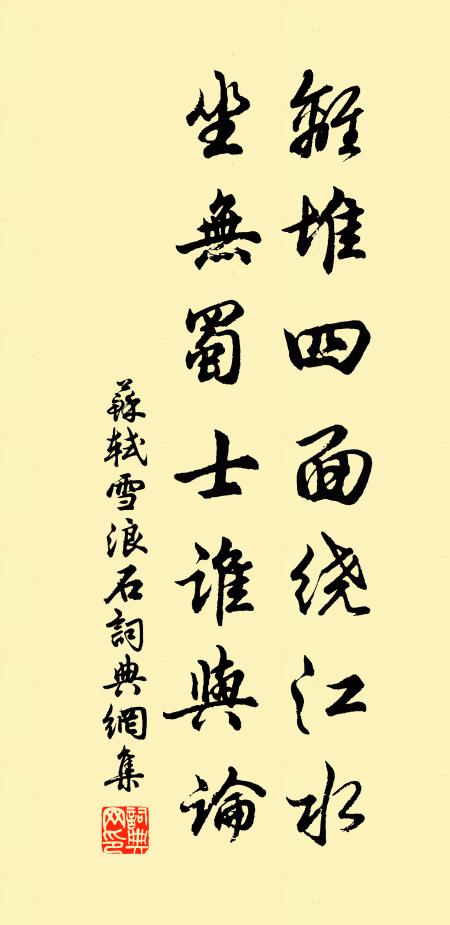 離堆四面绕江水
坐無蜀士誰與論
蘇軾雪浪石詞典網集
詞典網印